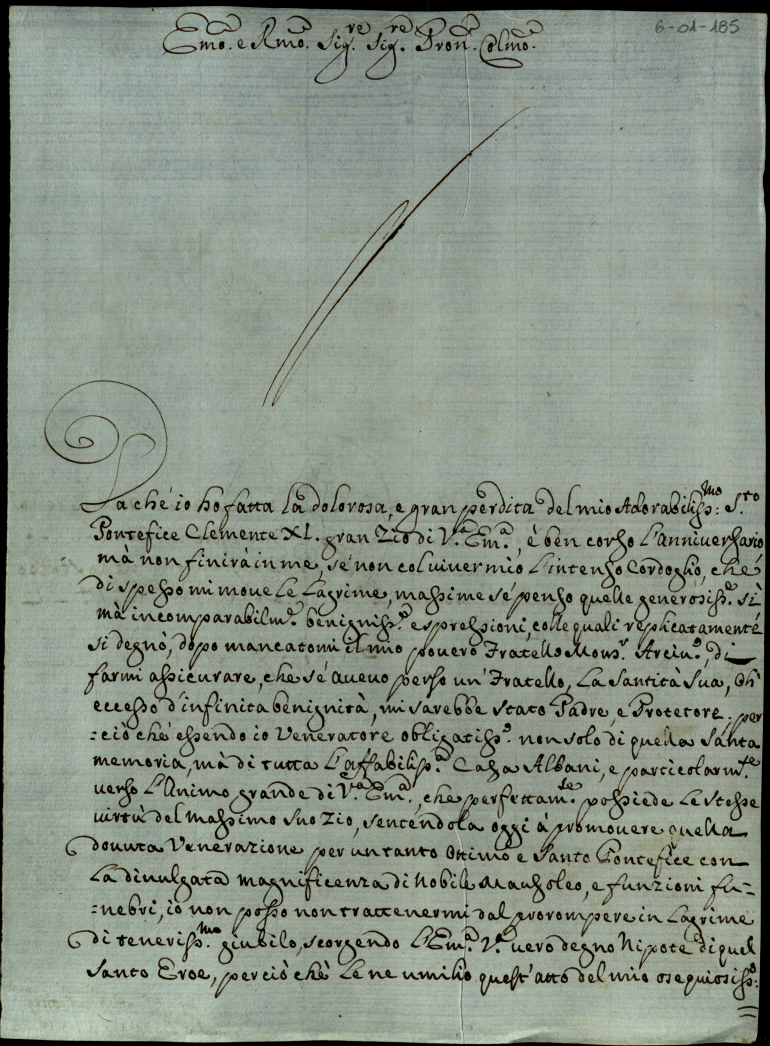 6-01-185
Em̃o. e Rm̃o. Sig.re Sig.re Pron. Colmo.
Da ché io hò fatta la dolorosa, e gran perdita del mio Adorabiliss:mo S.to
Pontefice Clemente XI. gran Zio di V.a Em.a, è ben corso l'anniversario
mà non finirà in me, sé non col viver mio l'intenso Cordoglio, ché
di spesso mi move le lagrime, massime sé penso quelle generosiss.e sì
mà incomparabilm.e benigniss.e espressioni, colle quali replicatamente
si degnò, dopo mancatomi il mio povero Fratello Mons.r Arciv.o, di
farmi assicurare, che sé avevo perso un' Fratello, La Santità Sua, di
eccesso d'infinita benignità, mi sarebbe stato Padre, e Protetore. per
=ciò ché essendo io Veneratore obligatiss.o non solo di quella Santa
memoria, mà di tutta l'affabiliss.a Casa Albani, e particolarm.te
verso l'Animo grande di V.a Em.a, che perfettam.te possiede le stesse
virtù del Massimo suo Zio, senténdola oggi à promovere quella
dovuta Venerazione per un tanto Ottimo e Santo Pontefice con
la divulgata magnificenza di Nobile Mausoleo, e funzioni fu=
=nebri, io non posso non trattenermi dal prorompere in lagrime
di teneriss.mo giubilo, scorgendo l'Em.a V.a vero degno Nipote di quel
Santo Eroe, perciò chè le ne umilio quest'atto del mio ossequiosiss.o